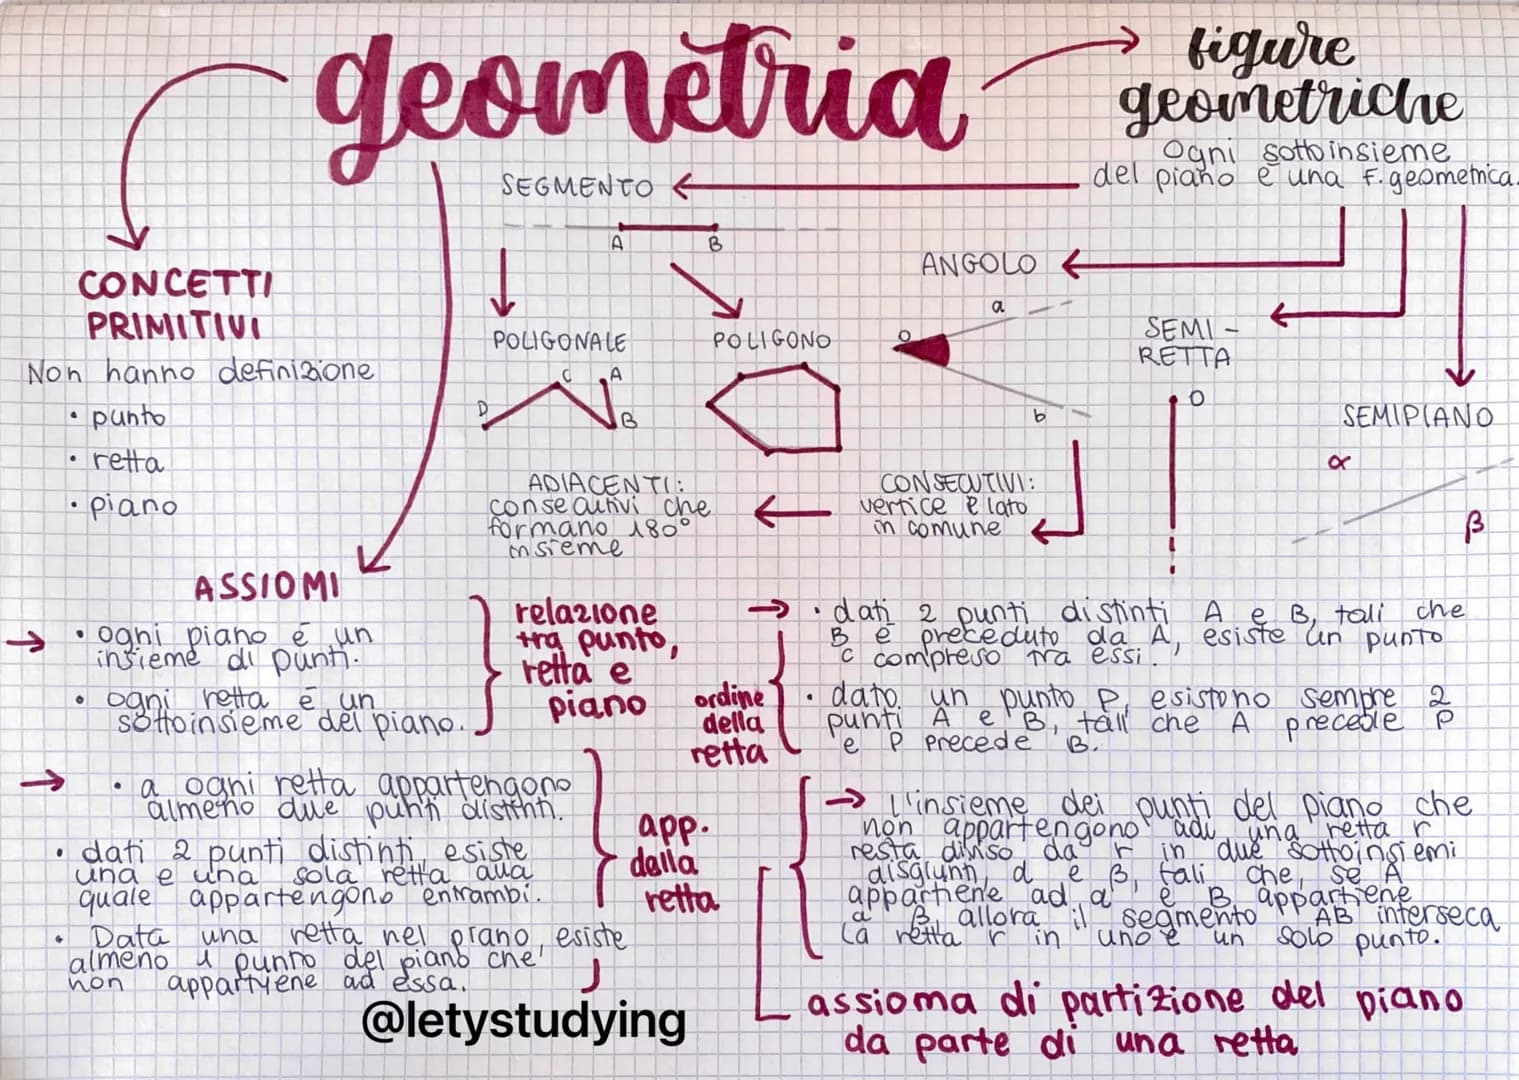 geometria
figure
geometriche
Ogni sottoinsieme
del piano è una f. geometrica.
SEGMENTO
A B
CONCETTI
PRIMITIVI
Non hanno definizione
• punto
• retta
• piano
POLIGONALE
D C A B
POLIGONO
ANGOLO
a
O
b
SEMI-
RETTA
O
SEMIPIANO
α
β
CONSECUTIVI:
vertice e lato
in comune
ADIACENTI:
consecutivi che
formano 180°
insieme
ASSIOMI
→ • ogni piano è un
insieme di punti.
• ogni retta è un
sottoinsieme del piano.
relazione
tra punto,
retta e
piano
→ • a ogni retta appartengono
almeno due punti distinti.
• dati 2 punti distinti, esiste
una e una sola retta alla
quale appartengono entrambi.
• Data una retta nel piano, esiste
almeno 1 punto del piano che
non appartyene ad essa.
app.
dalla
retta
ordine
della
retta
→ • dati 2 punti distinti A e B, tali che
B è preceduto da A, esiste un punto
C compreso tra essi.
• dato un punto P, esistono sempre 2
punti A e B, tali che A precede P
e P precede B.
→ L'insieme dei punti del piano che
non appartengono adu una retta r
resta diviso da r in due sottoinsiemi
disgiunti, α e β, tali che, se A
appartiene ad α e B appartiene
a β, allora il segmento AB interseca
la retta r in uno e un solo punto.
assioma di partizione del piano
da parte di una retta
@letystudying